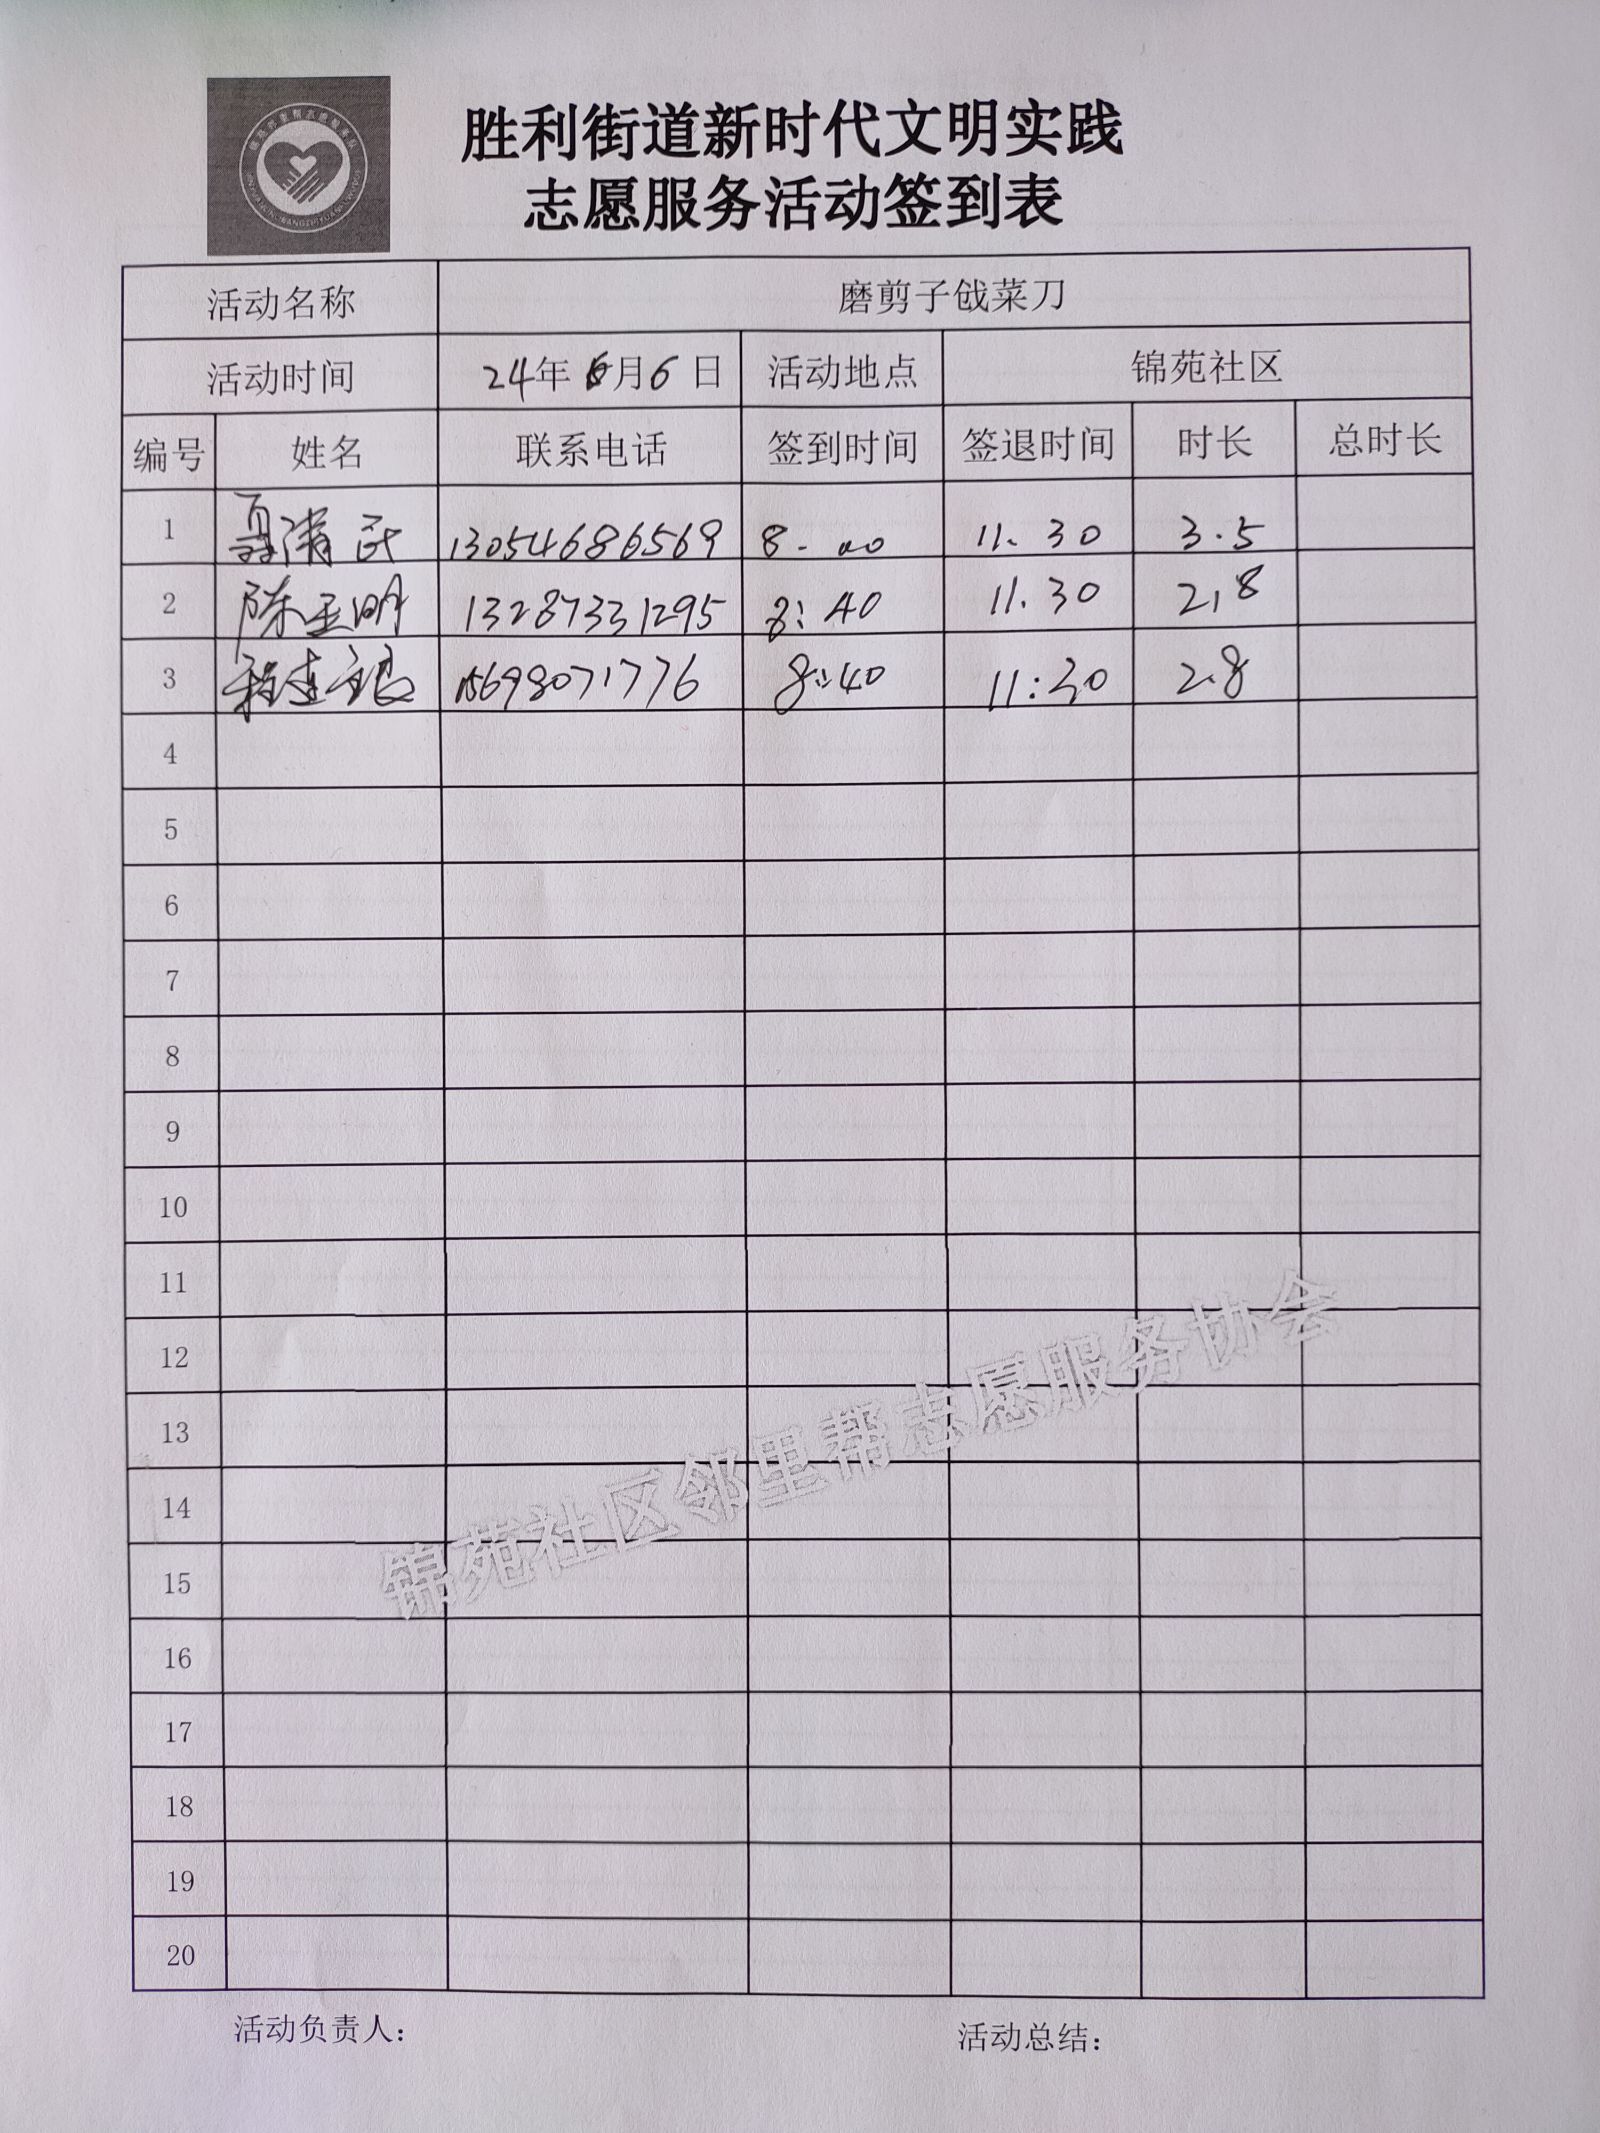 胜利街道新时代文明实践
志愿服务活动签到表
活动名称 磨剪子戗菜刀
活动时间 24年6月6日 活动地点 锦苑社区
编号 姓名 联系电话 签到时间 签退时间 时长 总时长
1 13054686569 8-00 11.30 3.5
2 陈玉明 13287331295 8:40 11.30 2.8
3 15698071776 8:40 11:30 2.8
4
5
6
7
8
9
10
11
12
13
14
15
16
17
18
19
20
锦苑社区邻里帮志愿服务协会
活动负责人： 活动总结：